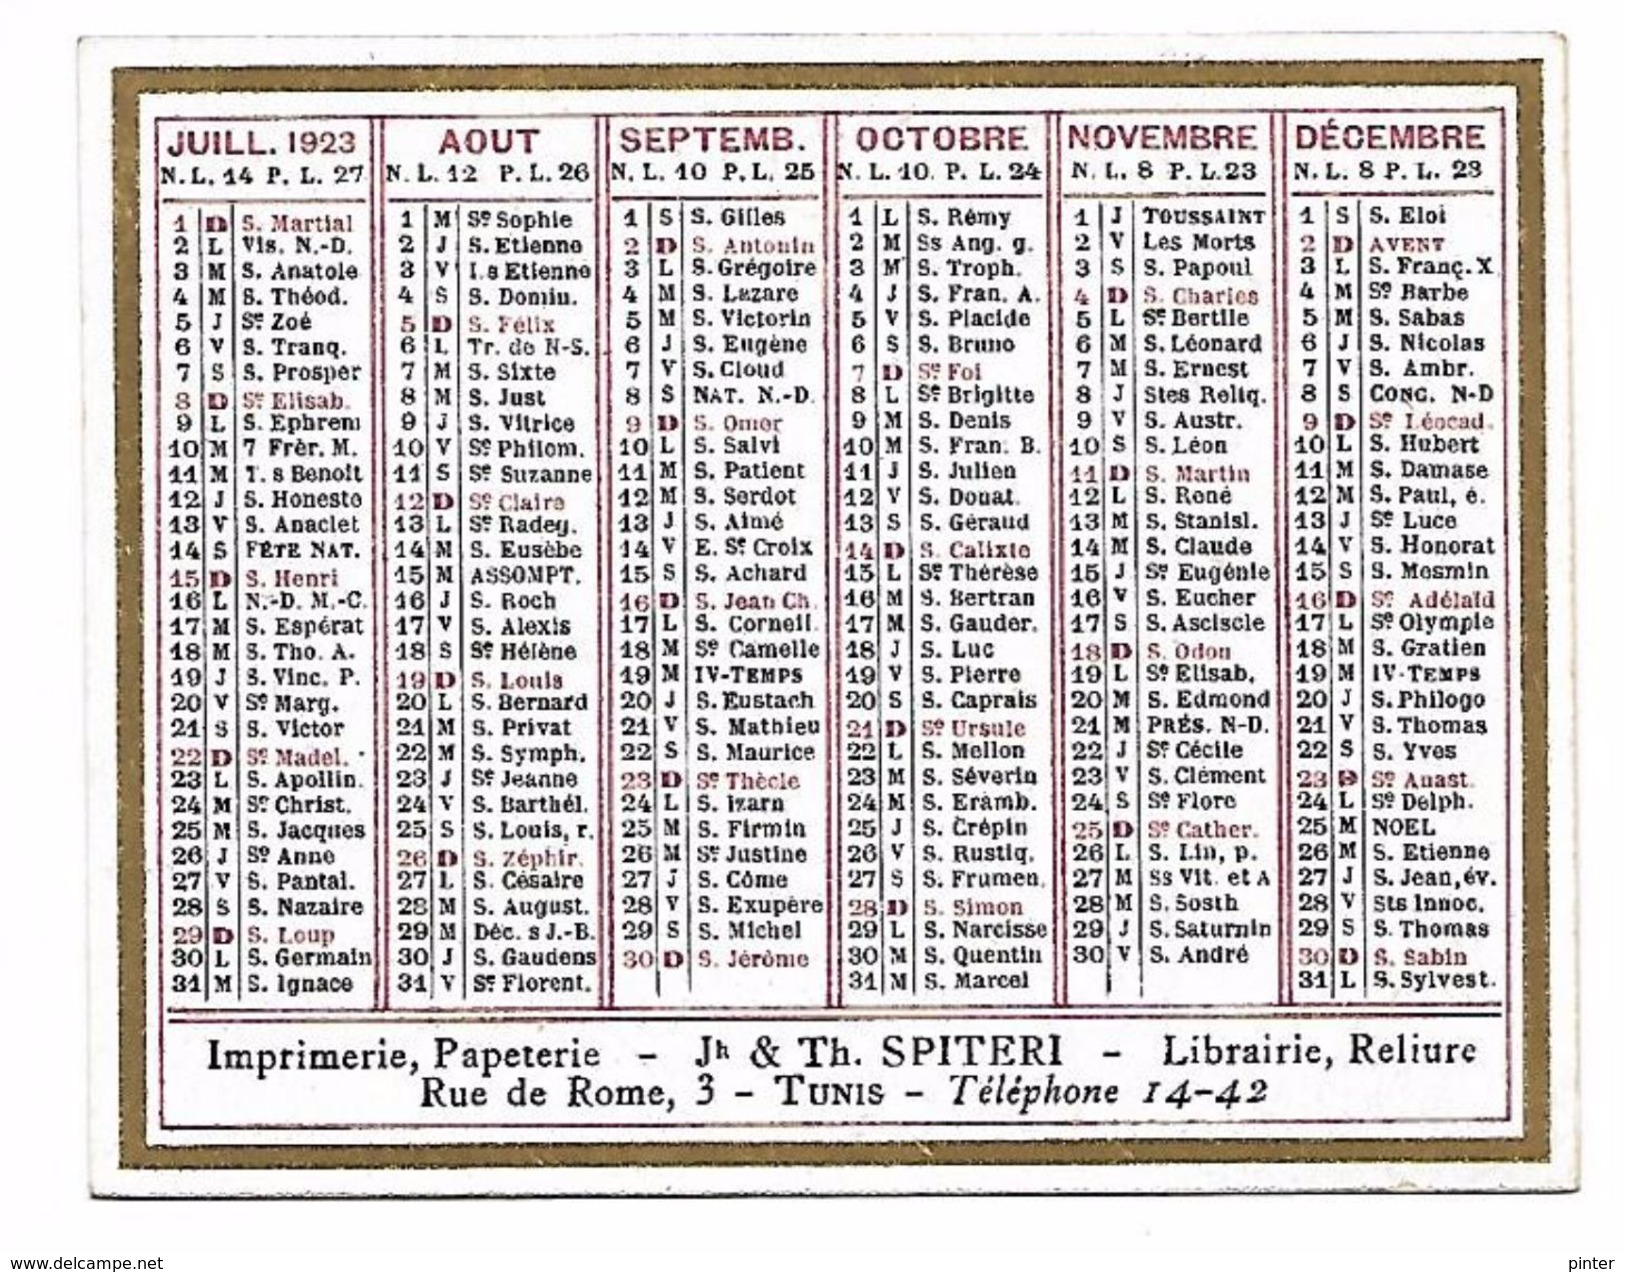 JUILL. 1923
N. L. 14 P. L. 27
1 D S. Martial
2 L Vis. N.-D.
3 M S. Anatole
4 M S. Théod.
5 J Se Zoé
6 V S. Tranq.
7 S S. Prosper
8 D Se Elisab.
9 L S. Ephrem
10 M 7 Frèr. M.
11 M T. s Benoît
12 J S. Honeste
13 V S. Anaclet
14 S FÊTE NAT.
15 D S. Henri
16 L N.-D. M.-C.
17 M S. Espérat
18 M S. Tho. A.
19 J S. Vinc. P.
20 V Se Marg.
21 S S. Victor
22 D Se Madel.
23 L S. Apollin.
24 M Se Christ.
25 M S. Jacques
26 J Se Anne
27 V S. Pantal.
28 S S. Nazaire
29 D S. Loup
30 L S. Germain
31 M S. Ignace
AOUT
N. L. 12 P. L. 26
1 M Se Sophie
2 J S. Etienne
3 V I. s Etienne
4 S S. Domin.
5 D S. Félix
6 L Tr. de N-S.
7 M S. Sixte
8 M S. Just
9 J S. Vitrice
10 V Se Philom.
11 S Se Suzanne
12 D Se Claire
13 L Se Radeg.
14 M S. Eusèbe
15 M ASSOMPT.
16 J S. Roch
17 V S. Alexis
18 S Se Hélène
19 D S. Louis
20 L S. Bernard
21 M S. Privat
22 M S. Symph.
23 J Se Jeanne
24 V S. Barthél.
25 S S. Louis, r.
26 D S. Zéphir.
27 L S. Césaire
28 M S. August.
29 M Déc. s J.-B.
30 J S. Gaudens
31 V Se Florent.
SEPTEMB.
N. L. 10 P. L. 25
1 S S. Gilles
2 D S. Antonin
3 L S. Grégoire
4 M S. Lazare
5 M S. Victorin
6 J S. Eugène
7 V S. Cloud
8 S NAT. N.-D.
9 D S. Omer
10 L S. Salvi
11 M S. Patient
12 M S. Serdot
13 J S. Aimé
14 V E. Se Croix
15 S S. Achard
16 D S. Jean Ch.
17 L S. Corneil.
18 M Se Camelle
19 M IV-TEMPS
20 J S. Eustach
21 V S. Mathieu
22 S S. Maurice
23 D Se Thècle
24 L S. Izarn
25 M S. Firmin
26 M Se Justine
27 J S. Côme
28 V S. Exupère
29 S S. Michel
30 D S. Jérôme
OCTOBRE
N. L. 10. P. L. 24
1 L S. Rémy
2 M Ss Ang. g.
3 M S. Troph.
4 J S. Fran. A.
5 V S. Placide
6 S S. Bruno
7 D Se Foi
8 L Se Brigitte
9 M S. Denis
10 M S. Fran. B.
11 J S. Julien
12 V S. Douat.
13 S S. Géraud
14 D S. Calixte
15 L Se Thérèse
16 M S. Bertran
17 M S. Gauder.
18 J S. Luc
19 V S. Pierre
20 S S. Caprais
21 D Se Ursule
22 L S. Mellon
23 M S. Séverin
24 M S. Eramb.
25 J S. Crépin
26 V S. Rustiq.
27 S S. Frumen.
28 D S. Simon
29 L S. Narcisse
30 M S. Quentin
31 M S. Marcel
NOVEMBRE
N. L. 8 P. L. 23
1 J TOUSSAINT
2 V Les Morts
3 S S. Papoul
4 D S. Charles
5 L Se Bertile
6 M S. Léonard
7 M S. Ernest
8 J Stes Reliq.
9 V S. Austr.
10 S S. Léon
11 D S. Martin
12 L S. René
13 M S. Stanisl.
14 M S. Claude
15 J Se Eugénie
16 V S. Eucher
17 S S. Asciscle
18 D S. Odon
19 L Se Elisab.
20 M S. Edmond
21 M PRÉS. N-D.
22 J Se Cécile
23 V S. Clément
24 S Se Flore
25 D Se Cather.
26 L S. Lin, p.
27 M Ss Vit. et A
28 M S. Sosth
29 J S. Saturnin
30 V S. André
DÉCEMBRE
N. L. 8 P. L. 23
1 S S. Eloi
2 D AVENT
3 L S. Franç. X
4 M Se Barbe
5 M S. Sabas
6 J S. Nicolas
7 V S. Ambr.
8 S CONC. N-D
9 D Se Léocad.
10 L S. Hubert
11 M S. Damase
12 M S. Paul, é.
13 J Se Luce
14 V S. Honorat
15 S S. Mesmin
16 D Se Adélaïd
17 L Se Olympie
18 M S. Gratien
19 M IV-TEMPS
20 J S. Philogo
21 V S. Thomas
22 S S. Yves
23 D Se Anast.
24 L Se Delph.
25 M NOEL
26 M S. Etienne
27 J S. Jean, év.
28 V Sts Innoc.
29 S S. Thomas
30 D S. Sabin
31 L S. Sylvest.
Imprimerie, Papeterie – Jh & Th. SPITERI – Librairie, Reliure
Rue de Rome, 3 – TUNIS – Téléphone 14-42
www.delcampe.net
pinter